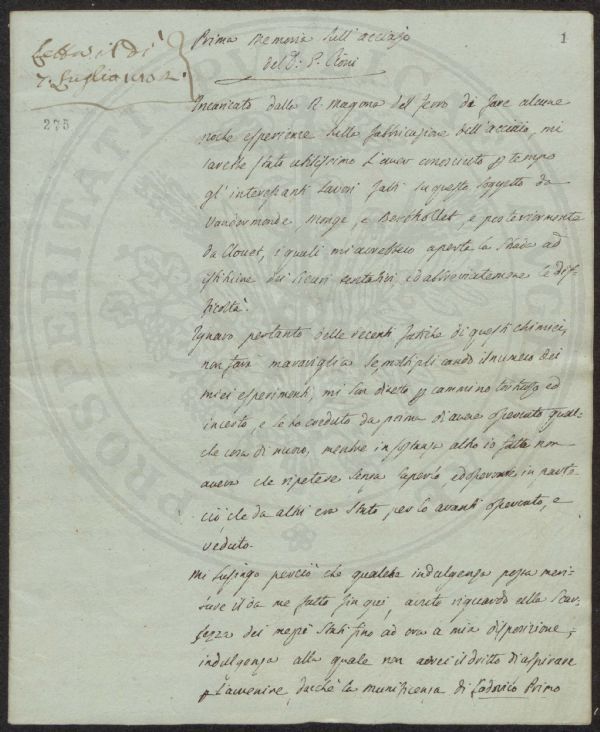 Letta il dì
7. Luglio 1802.
Prima Memoria sull'acciajo
del D: P. Cioni
1
273
Incaricato dalla R. Magona del ferro di fare alcune
poche esperienze sulla fabbricazione dell'acciajo, mi
sarebbe stato utilissimo l'aver conosciuto p tempo
gl'interessanti lavori fatti su questo soggetto da
Vandermonde, Monge, e Berthollet, e posteriormente
da Clouet, i quali mi avrebbero aperta la strada ad
istituire dei sicuri tentativi ed abbreviatemene le dif-
ficoltà.
Ignaro pertanto delle recenti fatiche di questi chimici,
non farà maraviglia se moltiplicando il numero dei
miei esperimenti, mi son diretto p cammino tortuoso ed
incerto, e se ho creduto da prima di avere osservato qual-
che cosa di nuovo, mentre in sostanza altro io fatto non
aveva che ripetere senza saperlo, ed osservare in parte
ciò che da altri era stato per lo avanti osservato, e
veduto.
Mi lusingo perciò che qualche indulgenza possa meri-
tare il da me fatto fin qui, avuto riguardo alla scar-
sezza dei mezzi stati fino ad ora a mia disposizione;
indulgenza alla quale non avrei il dritto di aspirare
p l'avvenire, dacchè la munificenza di Lodovico Primo
PROSPERITATI PUBLICAE